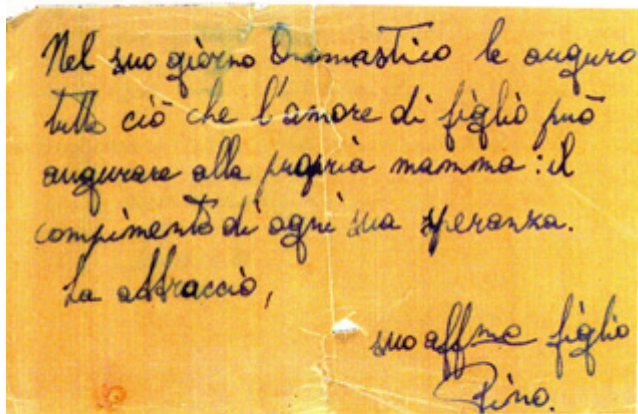 Nel suo giorno Onomastico le auguro
tutto ciò che l'amore di figlio può
augurare alla propria mamma: il
compimento di ogni sua speranza.
La abbraccio,
suo affmo figlio
Pino.